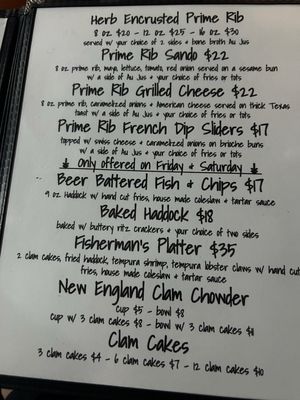 Herb Encrusted Prime Rib
8 oz $20 - 12 oz $25 - 16 oz $30
served w/ your choice of 2 sides + bone broth Au Jus
Prime Rib Sando $22
8 oz prime rib, mayo, lettuce, tomato, red onion served on a sesame bun
w/ a side of Au Jus + your choice of fries or tots
Prime Rib Grilled Cheese $22
8 oz prime rib, caramelized onions + American cheese served on thick Texas
toast w/ a side of Au Jus + your choice of fries or tots
Prime Rib French Dip Sliders $17
topped w/ swiss cheese + caramelized onions on brioche buns
w/ a side of Au Jus + your choice of fries or tots
Only offered on Friday & Saturday
Beer Battered Fish & Chips $17
9 oz Haddock w/ hand cut fries, house made coleslaw + tartar sauce
Baked Haddock $18
baked w/ buttery ritz crackers + your choice of two sides
Fisherman's Platter $35
2 clam cakes, fried haddock, tempura shrimp, tempura lobster claws w/ hand cut
fries, house made coleslaw + tartar sauce
New England Clam Chowder
cup $5 - bowl $8
cup w/ 3 clam cakes $8 - bowl w/ 3 clam cakes $11
Clam Cakes
3 clam cakes $4 - 6 clam cakes $7 - 12 clam cakes $10